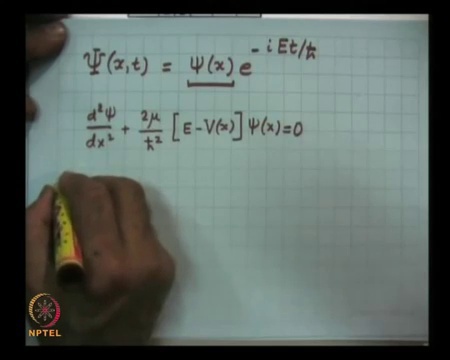 Ψ(x,t) = ψ(x) e^{-iEt/ħ}
d²ψ/dx² + 2μ/ħ² [E - V(x)] ψ(x) = 0
NPTEL